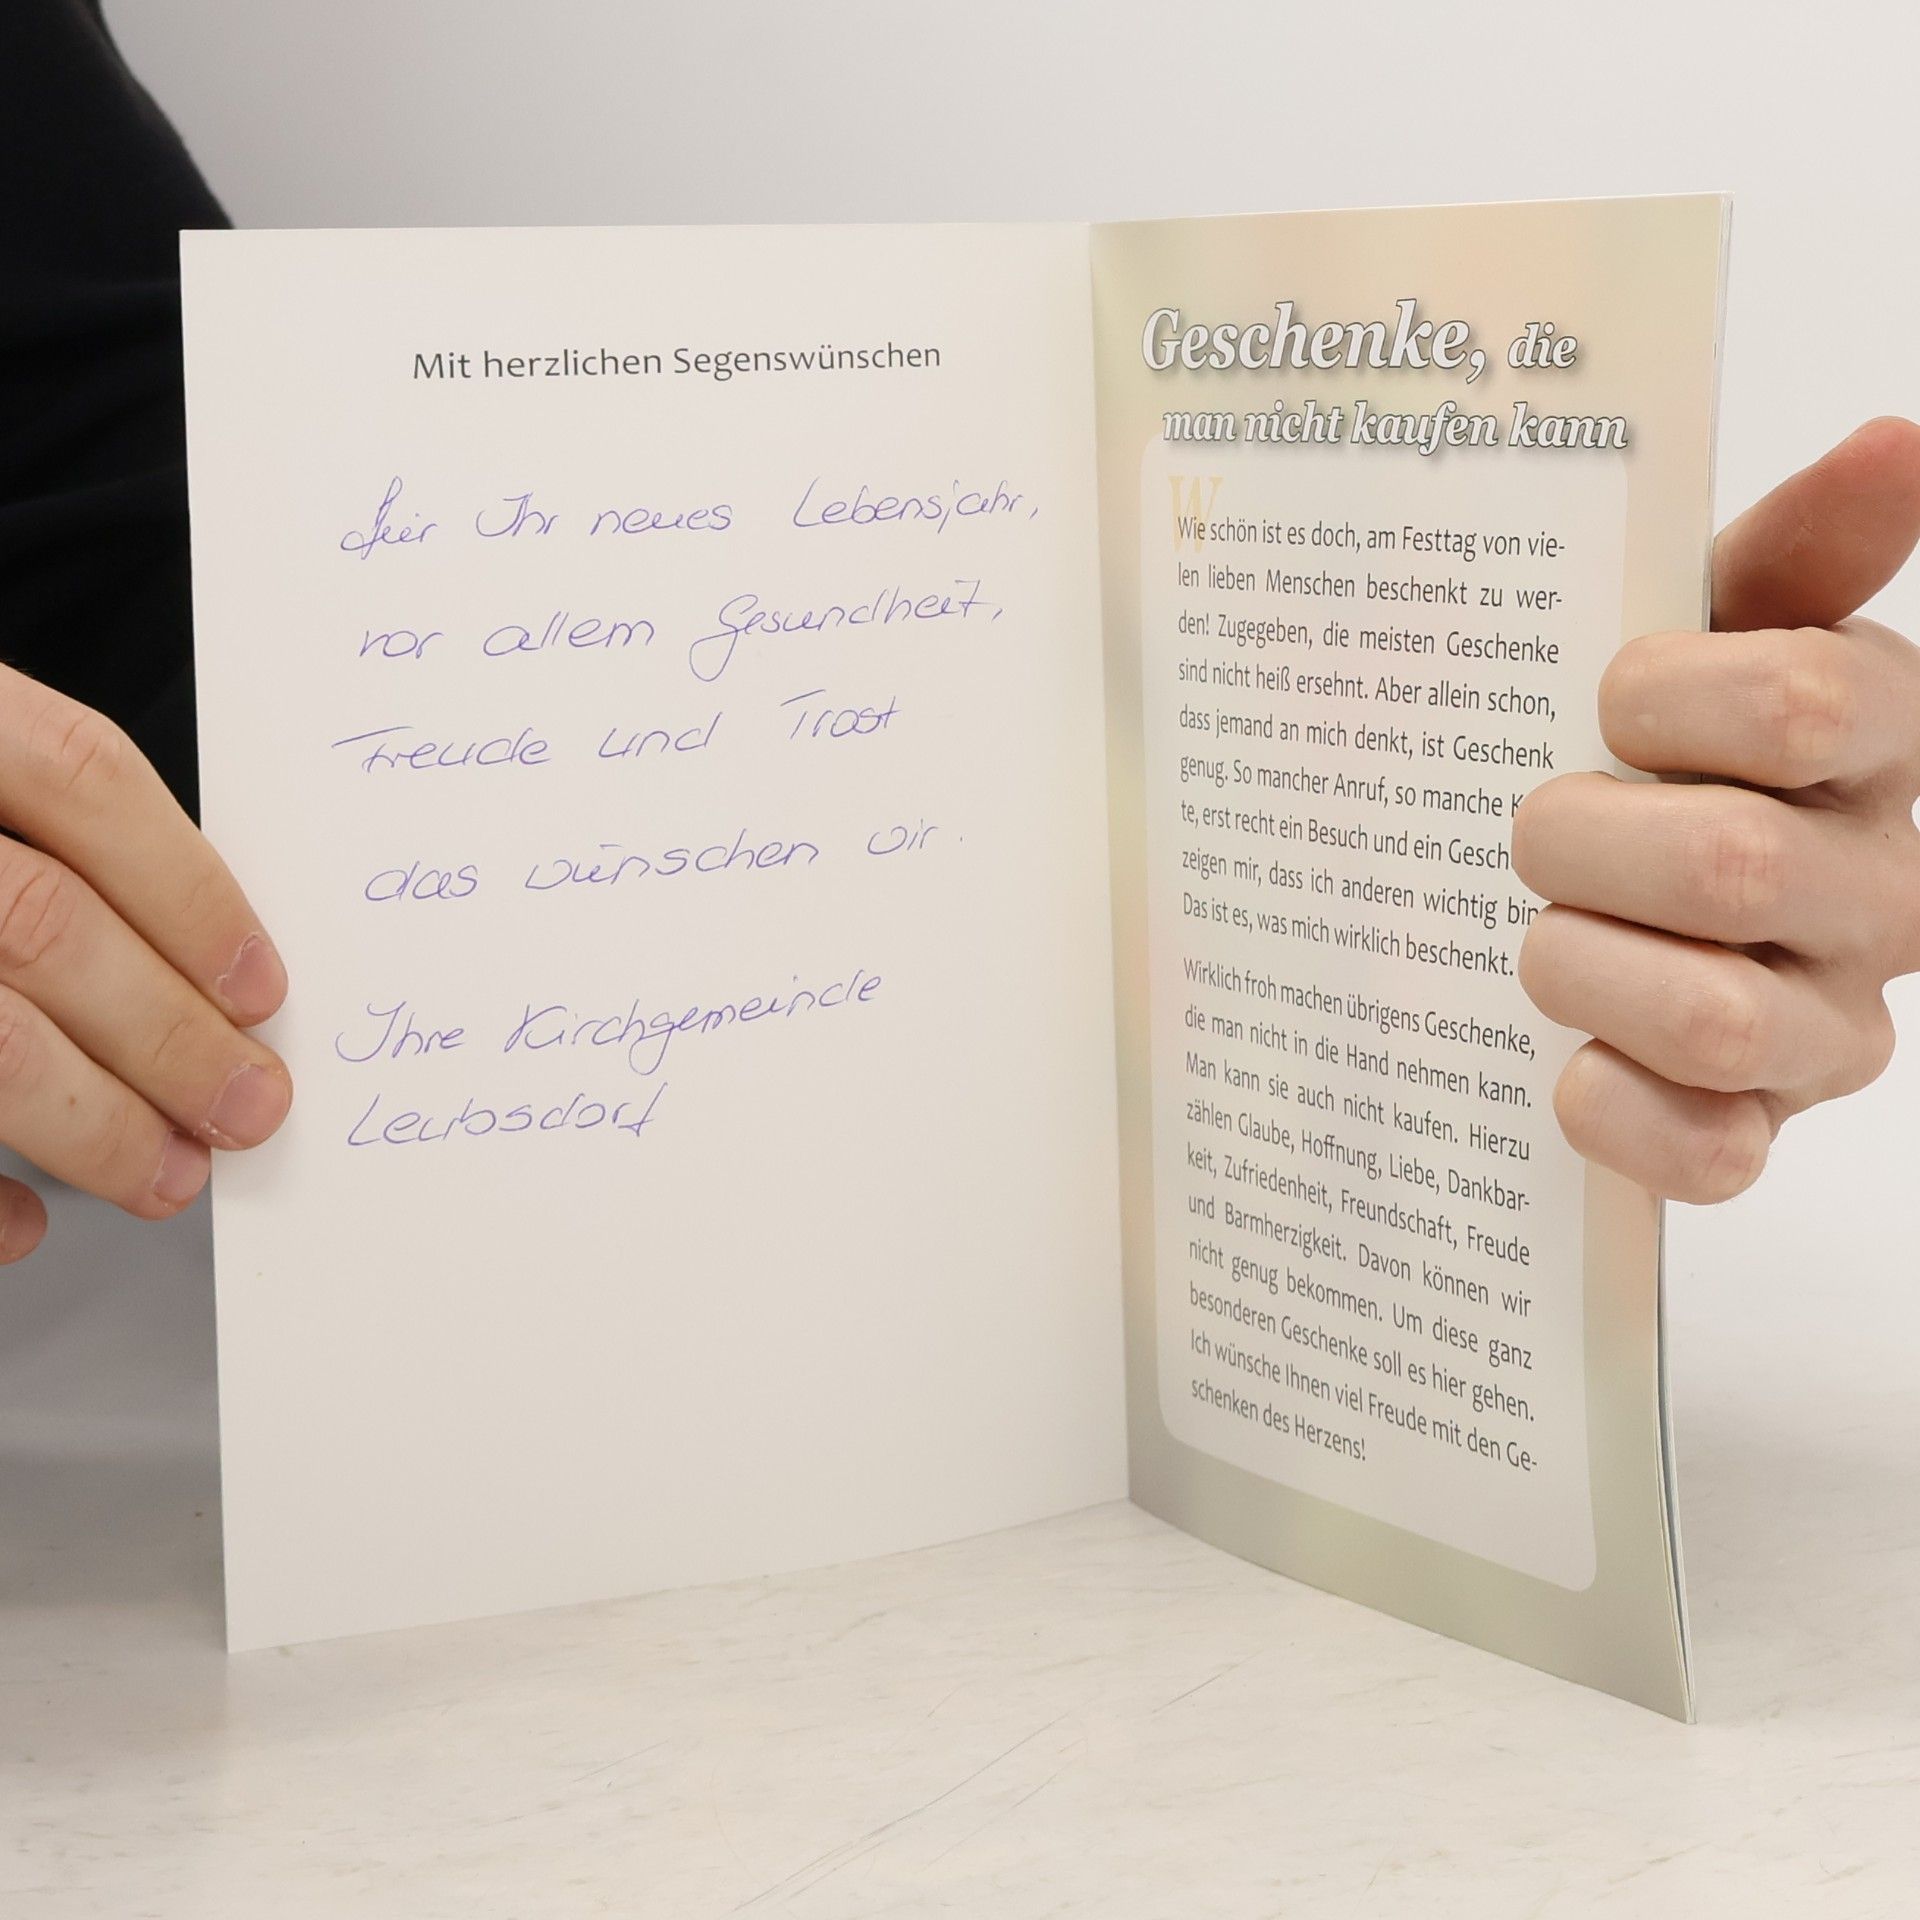 Mit herzlichen Segenswünschen
für Ihr neues Lebensjahr,
vor allem Gesundheit,
Freude und Trost
das wünschen wir.
Ihre Kirchgemeinde
Leubsdorf
Geschenke, die
man nicht kaufen kann
Wie schön ist es doch, am Festtag von vie-
len lieben Menschen beschenkt zu wer-
den! Zugegeben, die meisten Geschenke
sind nicht heiß ersehnt. Aber allein schon,
dass jemand an mich denkt, ist Geschenk
genug. So mancher Anruf, so manche K
te, erst recht ein Besuch und ein Gesch
zeigen mir, dass ich anderen wichtig bin
Das ist es, was mich wirklich beschenkt.
Wirklich froh machen übrigens Geschenke,
die man nicht in die Hand nehmen kann.
Man kann sie auch nicht kaufen. Hierzu
zählen Glaube, Hoffnung, Liebe, Dankbar-
keit, Zufriedenheit, Freundschaft, Freude
und Barmherzigkeit. Davon können wir
nicht genug bekommen. Um diese ganz
besonderen Geschenke soll es hier gehen.
Ich wünsche Ihnen viel Freude mit den Ge-
schenken des Herzens!